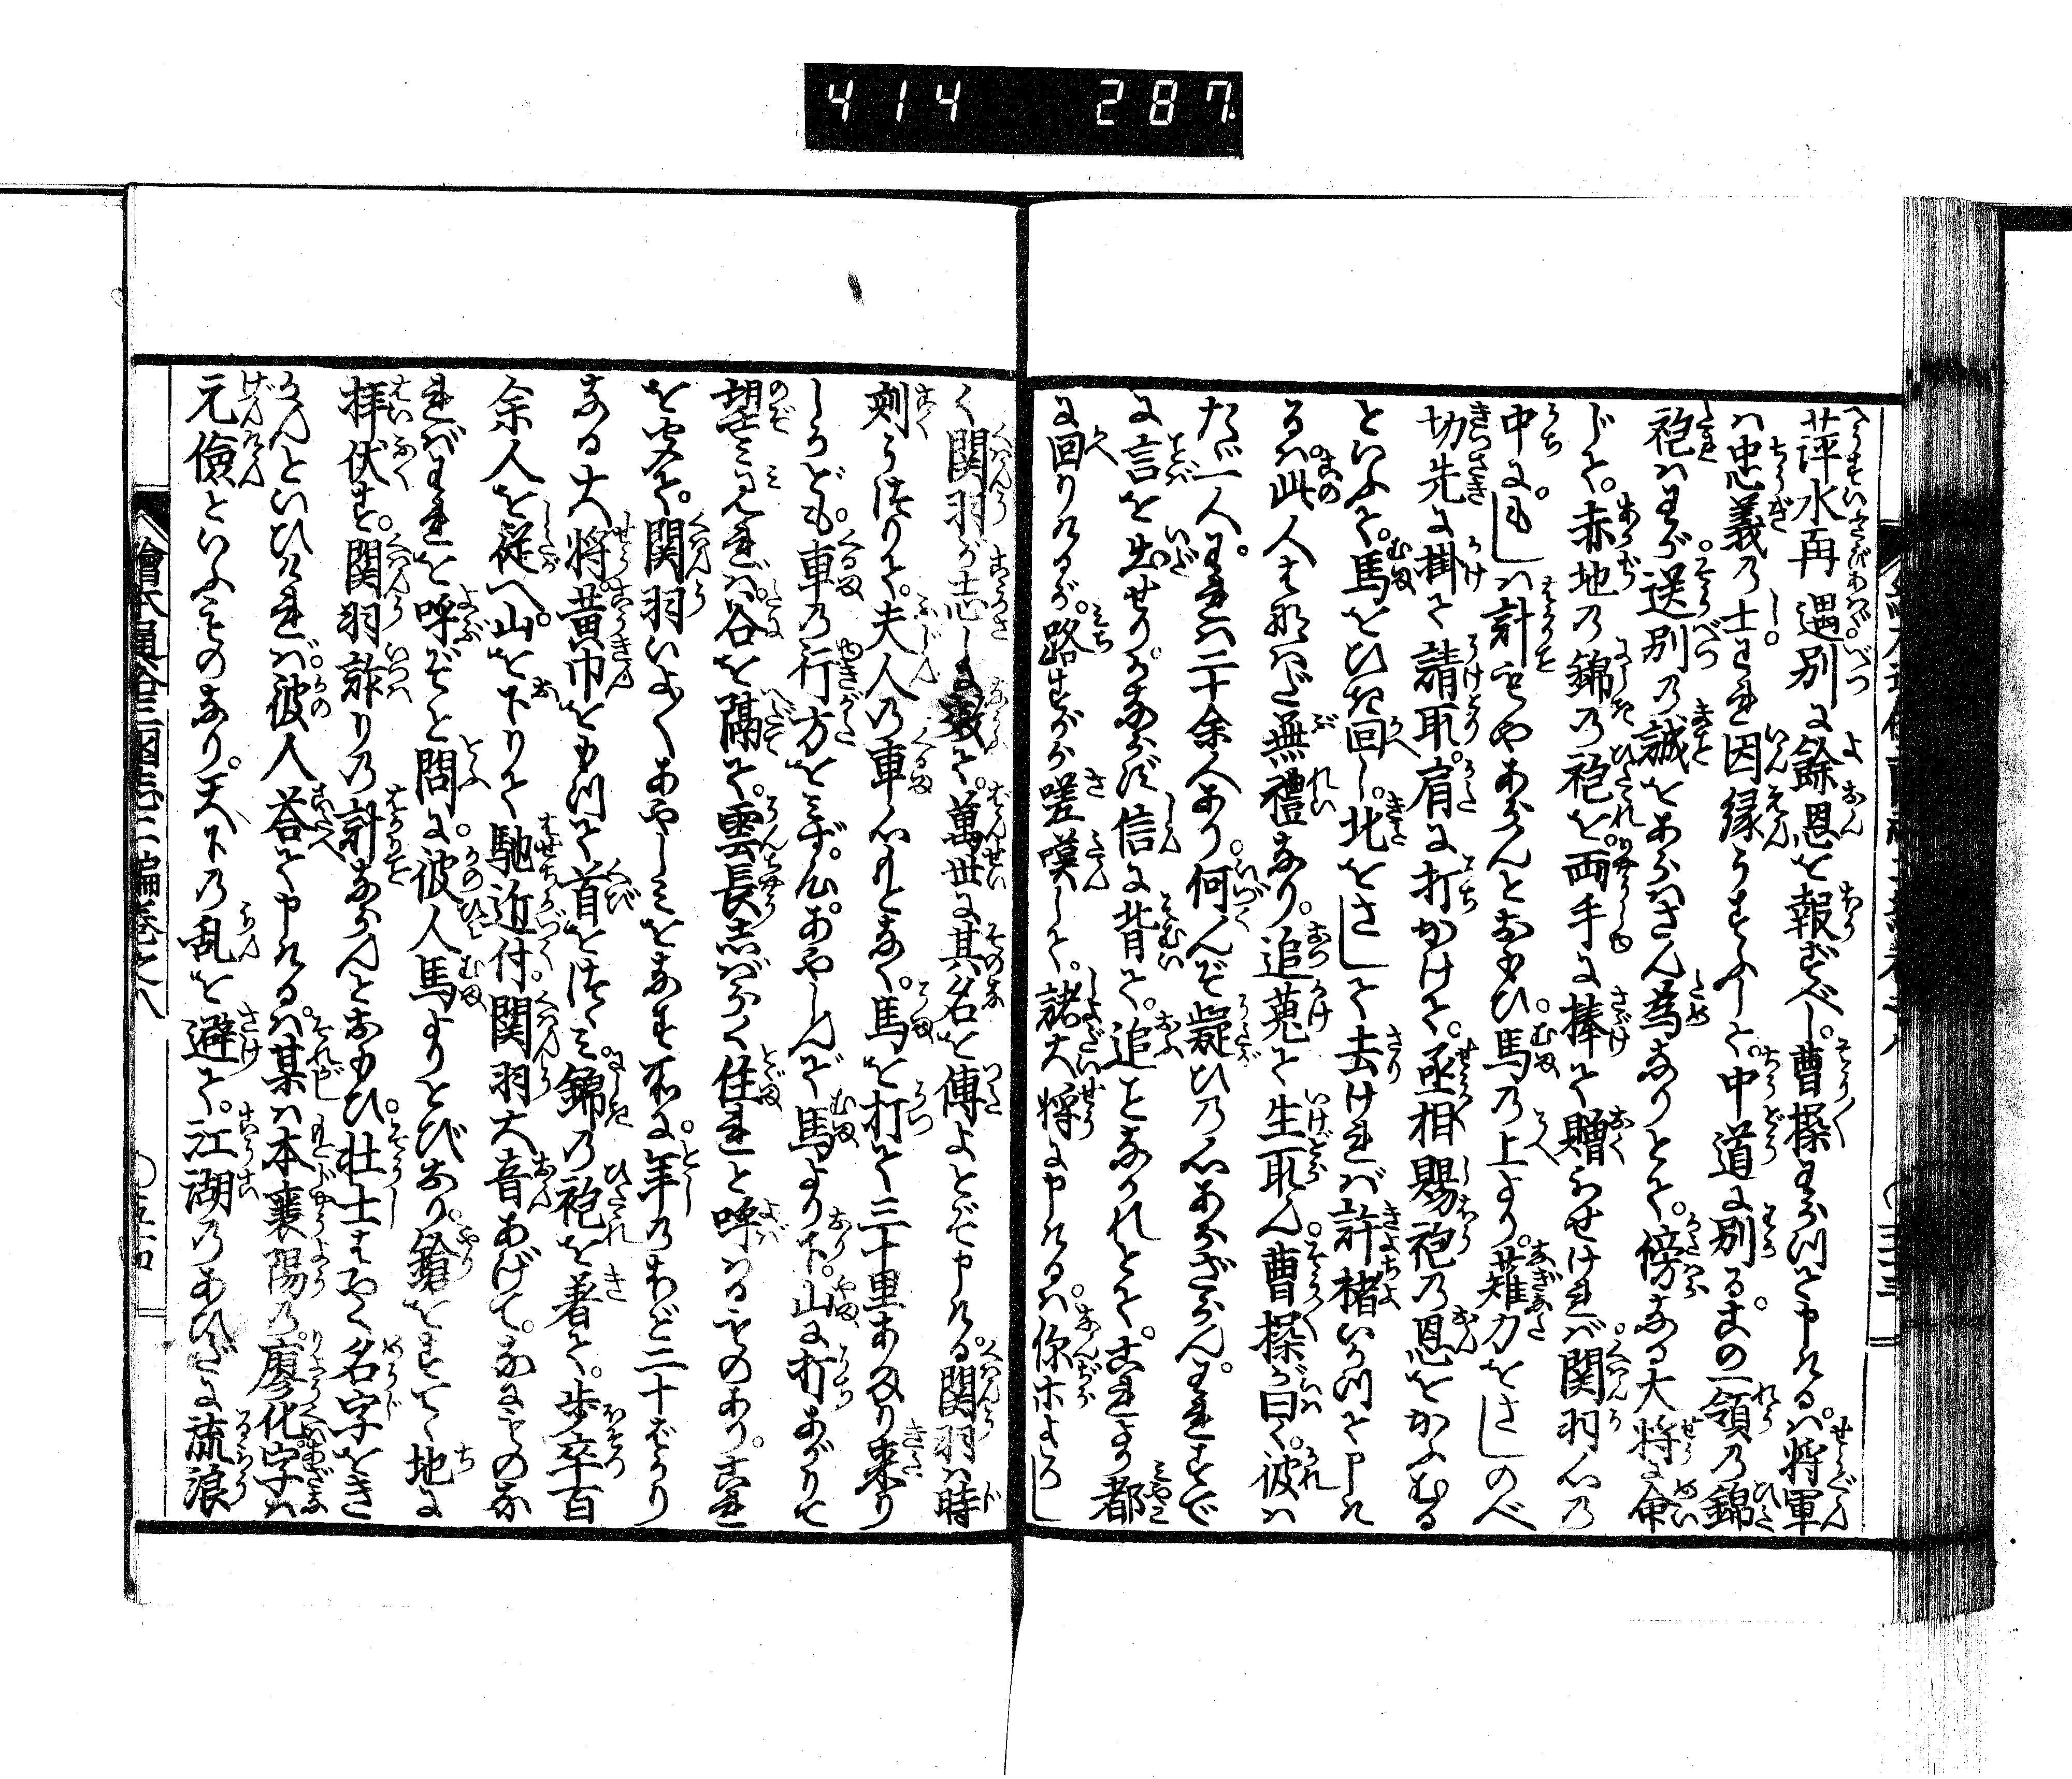 414 287
萍水再遇別に餘恩を報ずべし。曹操わらつて申けるは。将軍
は忠義の士。われ因縁うすふして。中道に別る。この一領の錦
袍はわが送別の誠をあらはさん為なりとて。傍なる大将に命
じて。赤地の錦の袍を。両手に捧て贈らせければ。関羽心の
中に。もしは計ごとやあらんとおもひ。馬の上より。薙刀をさしのべ
切先に掛て請取。肩に打かけて。丞相賜袍の恩をかふむる
といふて。馬をひき回し。北をさして去ければ許褚いかつて申け
るは。此人はなはだ無禮なり。追蒐て生取ん。曹操が曰く。彼は
たゞ一人。われは二十余人あり。何んぞ疑ひの心あらざらん。われすで
に言を出せり。ながく信に背て。追ことなかれとて。これより都
に回りけるが。路すがら嗟嘆して。諸大将に申けるは。你ホよろし
く関羽が志しに效て。萬世に其名を傳よとぞ申ける。関羽は時
刻うつりて。夫人の車心もとなく。馬を打て三十里あまり来り
しかども。車の行方をみず。心あやしんで馬より下。山に打あがりて
望みみれば。谷を隔て。雲長しばらく住れと呼はるものあり。これ
を聞て。関羽いよ〳〵あやしみをなす所に。年のほど二十ばかり
なる大将。黄巾をもつて首をつゝみ。錦の袍を着て。歩卒百
余人を従へ。山を下りて馳近付。関羽大音あげて。なにものな
ればわれを呼ぞと問に。彼人馬よりとびおり。鎗をすてゝ地に
拝伏す。関羽詐りの計ならんとおもひ。壮士はやく名字をき
かんといひければ。彼人荅て申けるは。某は本襄陽の廖化。字は
元儉といふものなり。天下の乱を避て。江湖のあひだに流浪
繪本通俗三國志二編巻之八